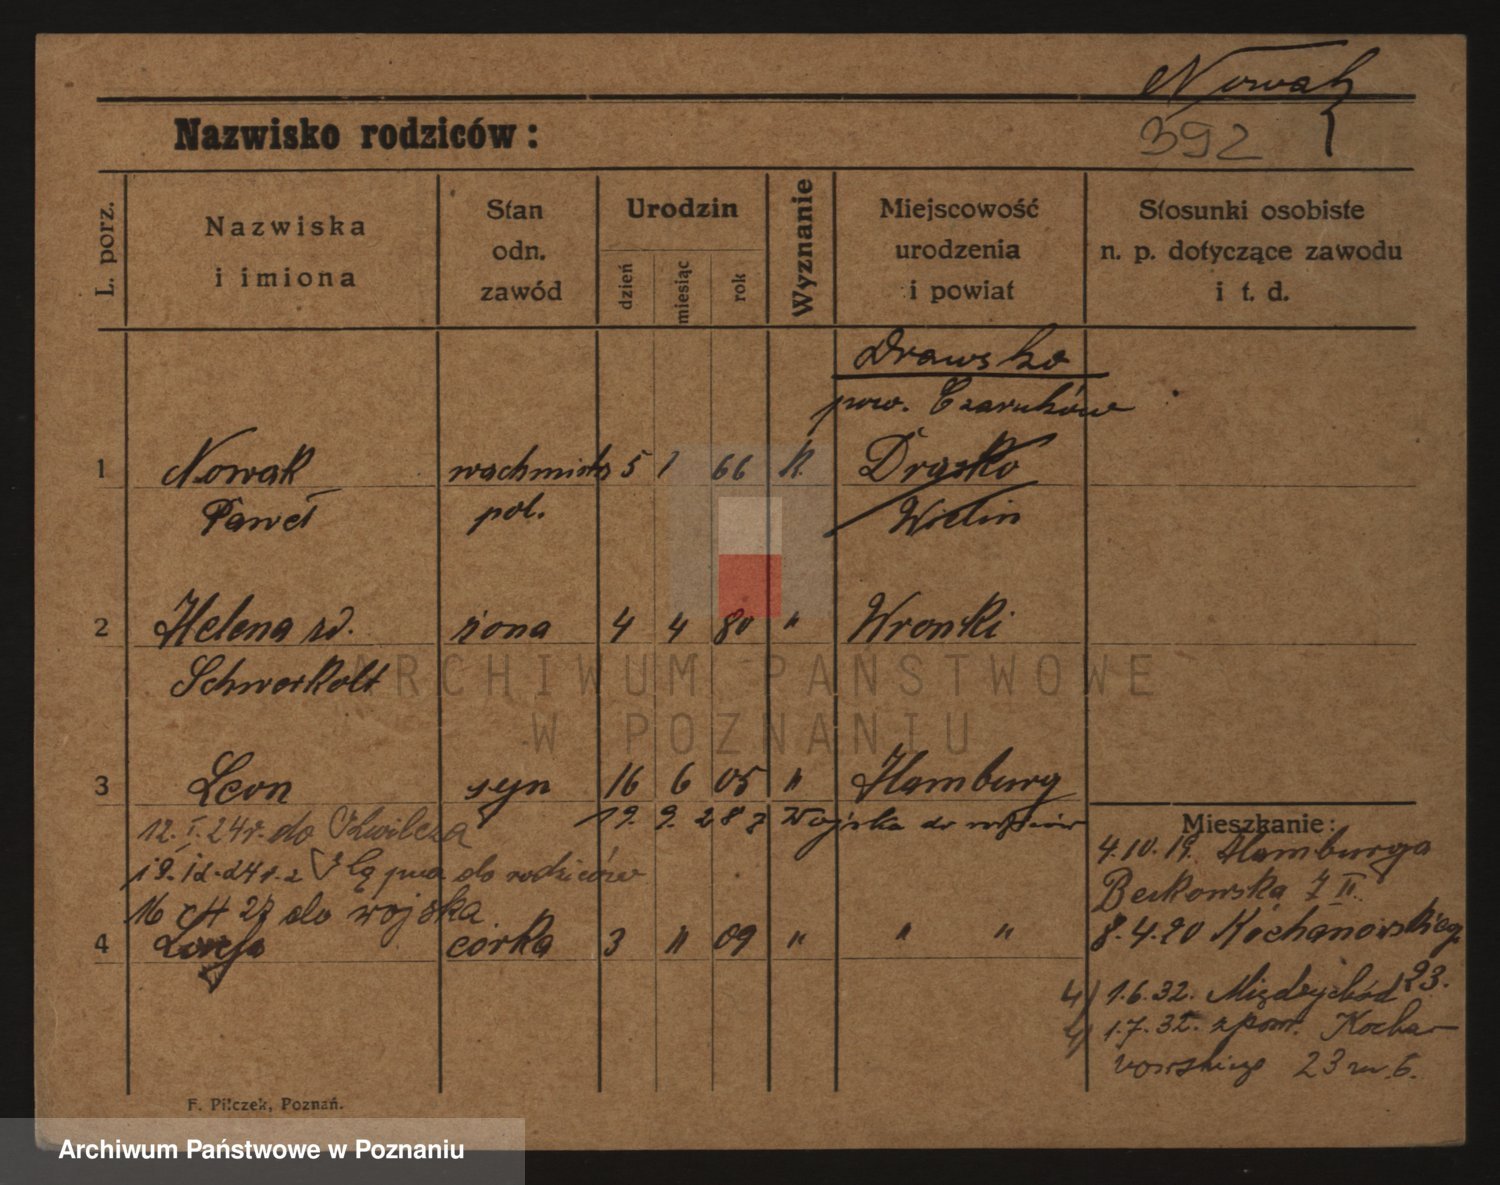 Nowak
392
Nazwisko rodziców:
L. porz.
Nazwiska
i imiona
Stan
odn.
zawód
Urodzin
dzień
miesiąc
rok
Wyznanie
Miejscowość
urodzenia
i powiat
Stosunki osobiste
n. p. dotyczące zawodu
i t. d.
Drawsko
pow. Czarnków
1 Nowak wachmistrz 5 1 66 K. Drasko
Paweł pol. Wielin
2 Helena żona 4 4 80 " Wronki
Schwerkolt
3 Leon syn 16 6 05 " Hamburg
12. I. 24 r. do
19. 9. 28 z Wojska do
Mieszkanie:
4.10.19. Hamburga
19.12.24 r. z do rodziców
16 27 do wojska
8.4.20 Kochanowskieg
4 córka 3 " 09 " " "
23.
4) 1.6.32. Międzychód
4) 1.7.32. z pow. Kocha-
nowskiego 23 m. 6.
F. Pilczek, Poznań.
ARCHIWUM PAŃSTWOWE
W POZNANIU
Archiwum Państwowe w Poznaniu